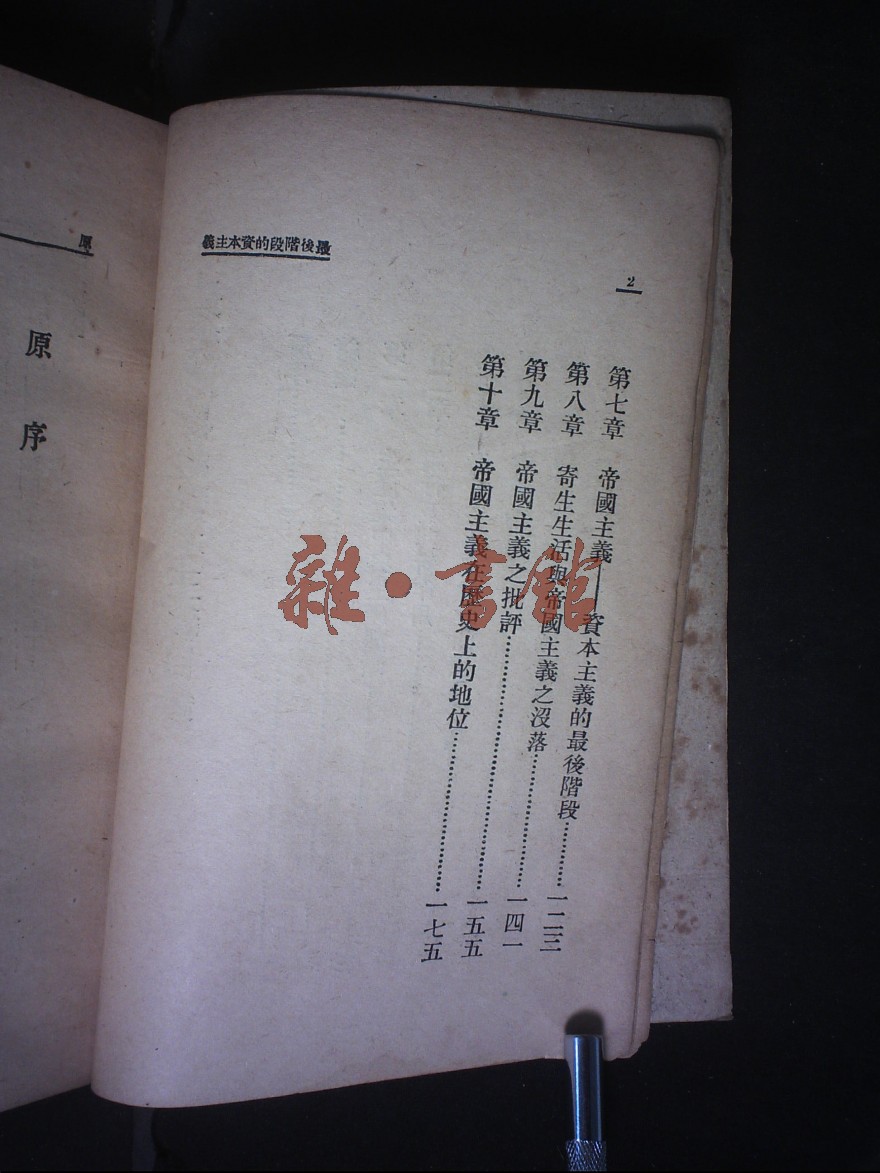 最後階段的資本主義
2
第七章 帝國主義——資本主義的最後階段…………一二三
第八章 寄生生活與帝國主義之沒落…………一四一
第九章 帝國主義之批評…………一五五
第十章 帝國主義在歷史上的地位…………一七五
原
原序
雜·書館